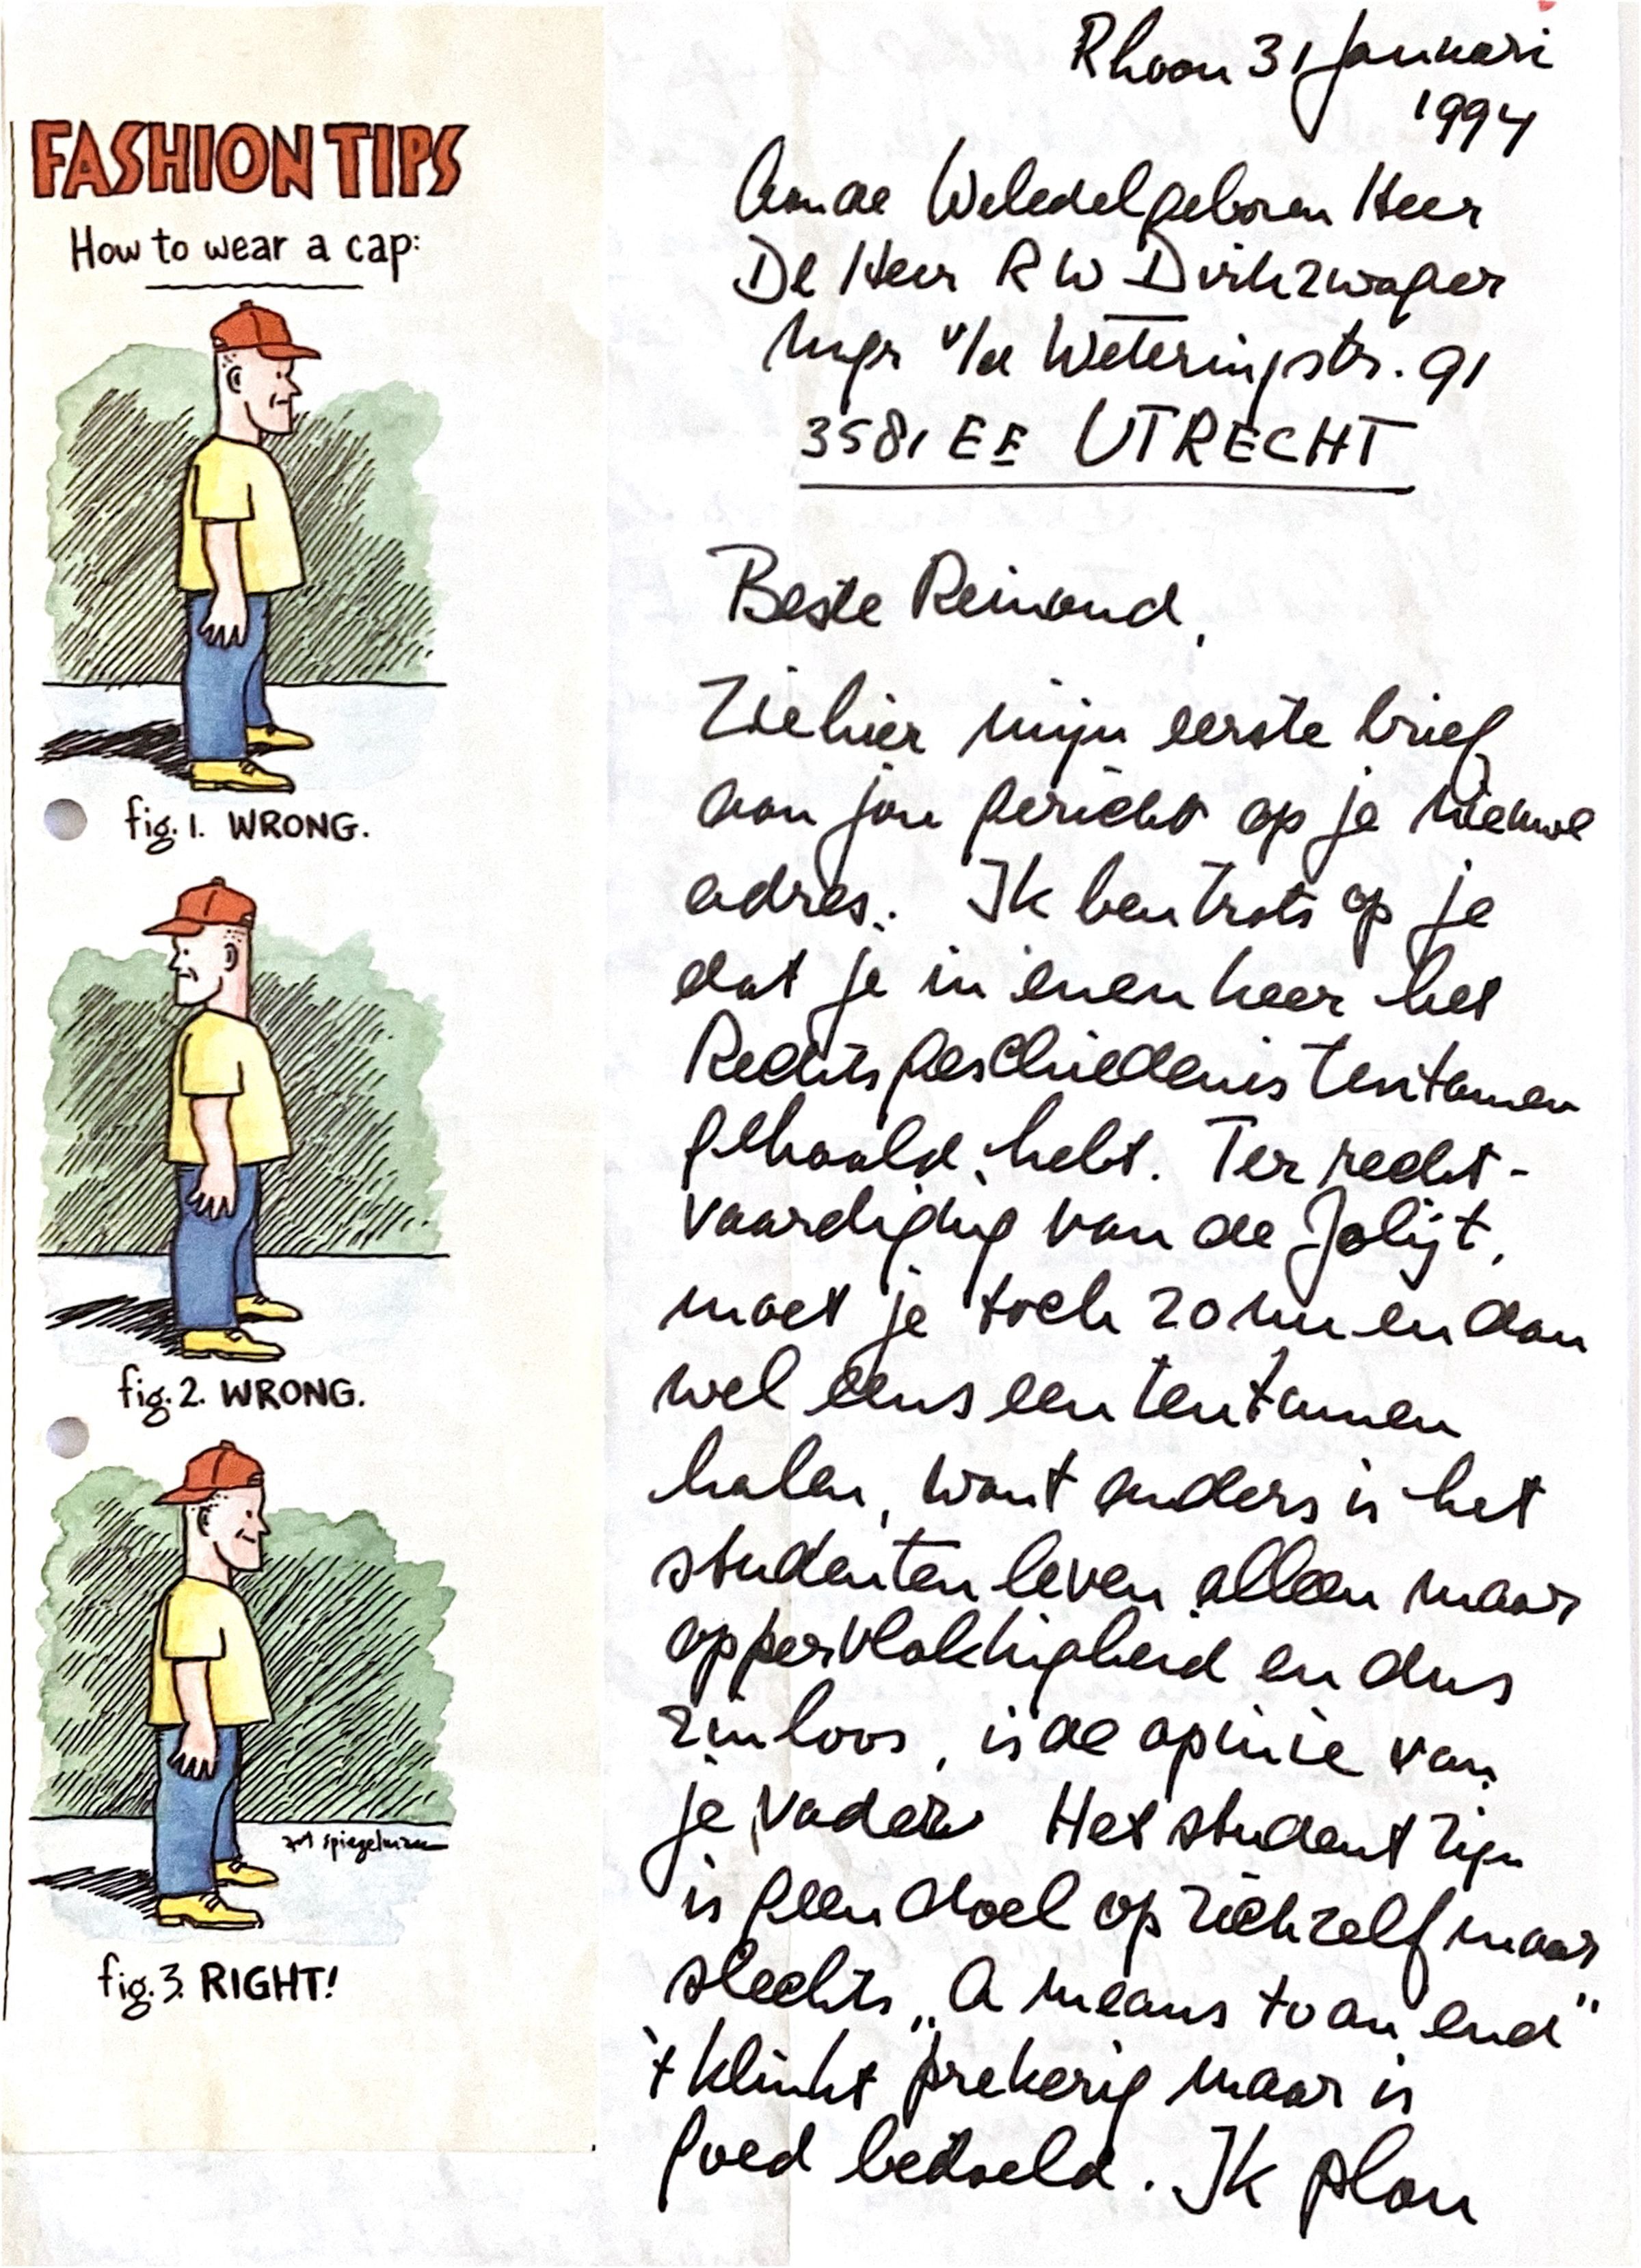 FASHION TIPS
How to wear a cap:
fig. 1. WRONG.
fig. 2. WRONG.
art spiegelman
fig. 3. RIGHT!
Rhoon 31 Januari
1994
Aan de Weledelgeboren Heer
De Heer R W Dirkzwager
Mgr v/d Weteringstr. 91
3581 EE UTRECHT
Beste Reinoud,
Ziehier mijn eerste brief
aan jou gericht op je nieuwe
adres. Ik ben trots op je
dat je in enen keer het
Rechtsgeschiedenis tentamen
gehaald hebt. Ter recht-
vaardiging van de Jolijt,
moet je toch zo nu en dan
wel eens een tentamen
halen, want anders is het
studenten leven alleen maar
oppervlakkigheid en dus
zinloos, is de opinie van
je vader. Het student zijn
is geen doel op zichzelf maar
slechts „A means to an end"
't klinkt prekerig maar is
goed bedoeld. Ik plan